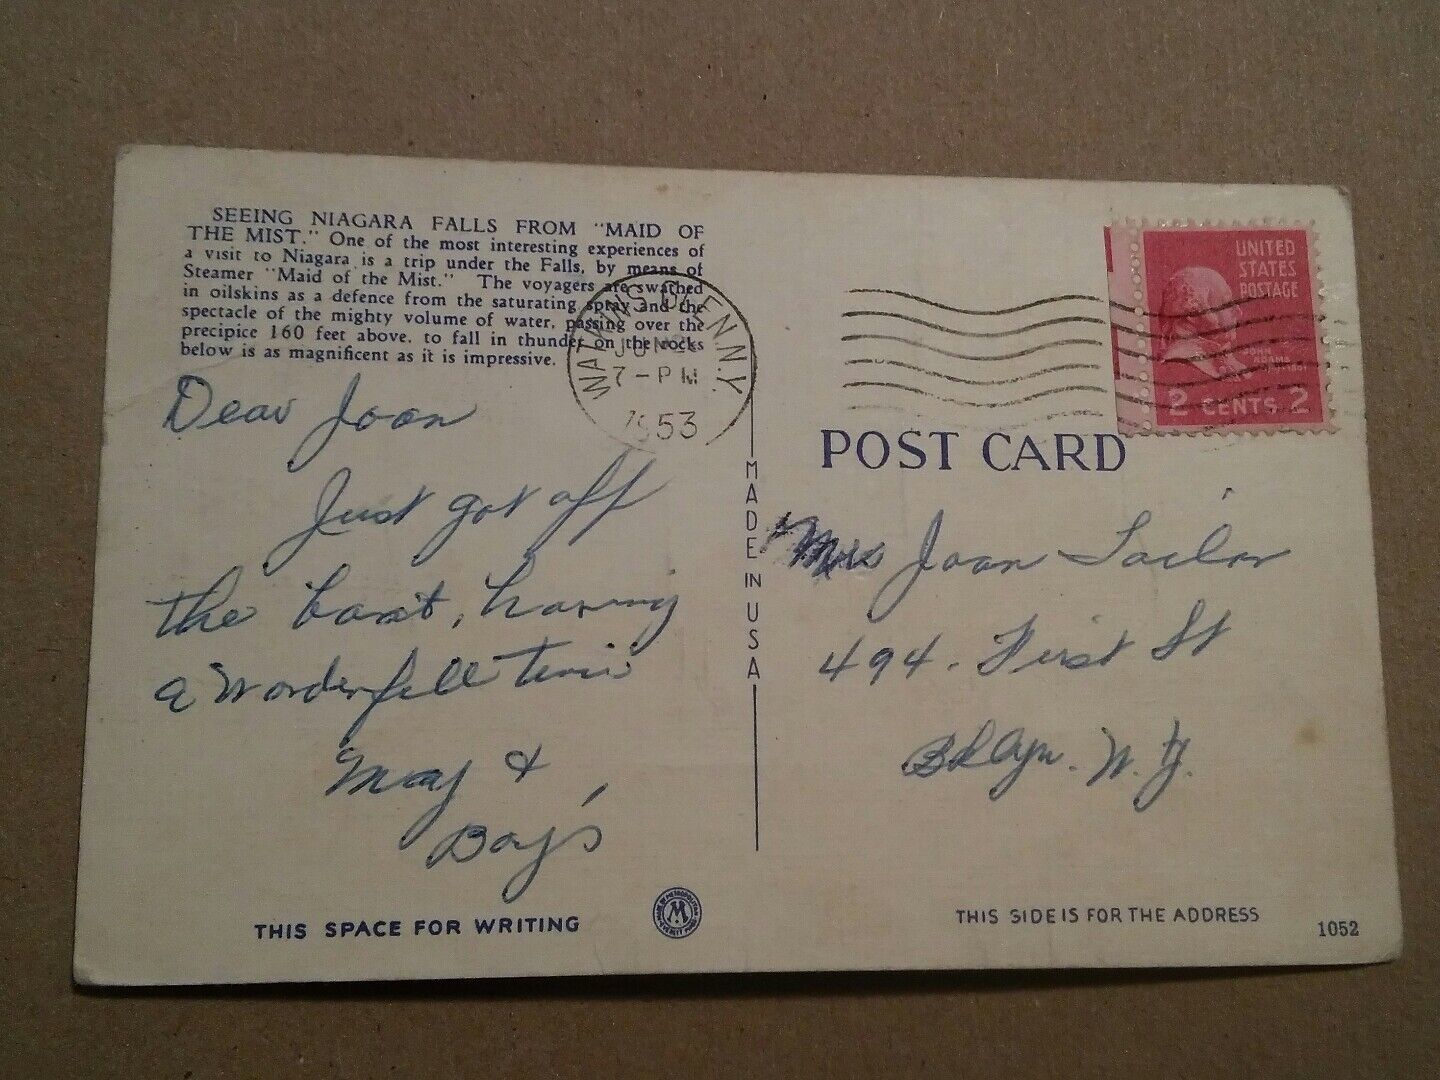 SEEING NIAGARA FALLS FROM "MAID OF
THE MIST." One of the most interesting experiences of
a visit to Niagara is a trip under the Falls, by means of
Steamer "Maid of the Mist." The voyagers are swathed
in oilskins as a defence from the saturating spray and the
spectacle of the mighty volume of water, passing over the
precipice 160 feet above, to fall in thunder on the rocks
below is as magnificent as it is impressive.
WATKINS GLEN N.Y.
7-PM
1953
UNITED
STATES
POSTAGE
JOHN
ADAMS
2 CENTS 2
POST CARD
Dear Joan
Just got off
the boat, having
a wonderfull time
May &
Boy's
MADE IN USA
Mrs Joan
494. First St
Bklyn. N. Y.
THIS SPACE FOR WRITING
MADE BY METROPOLITAN
EVERETT MASS.
M
THIS SIDE IS FOR THE ADDRESS
1052